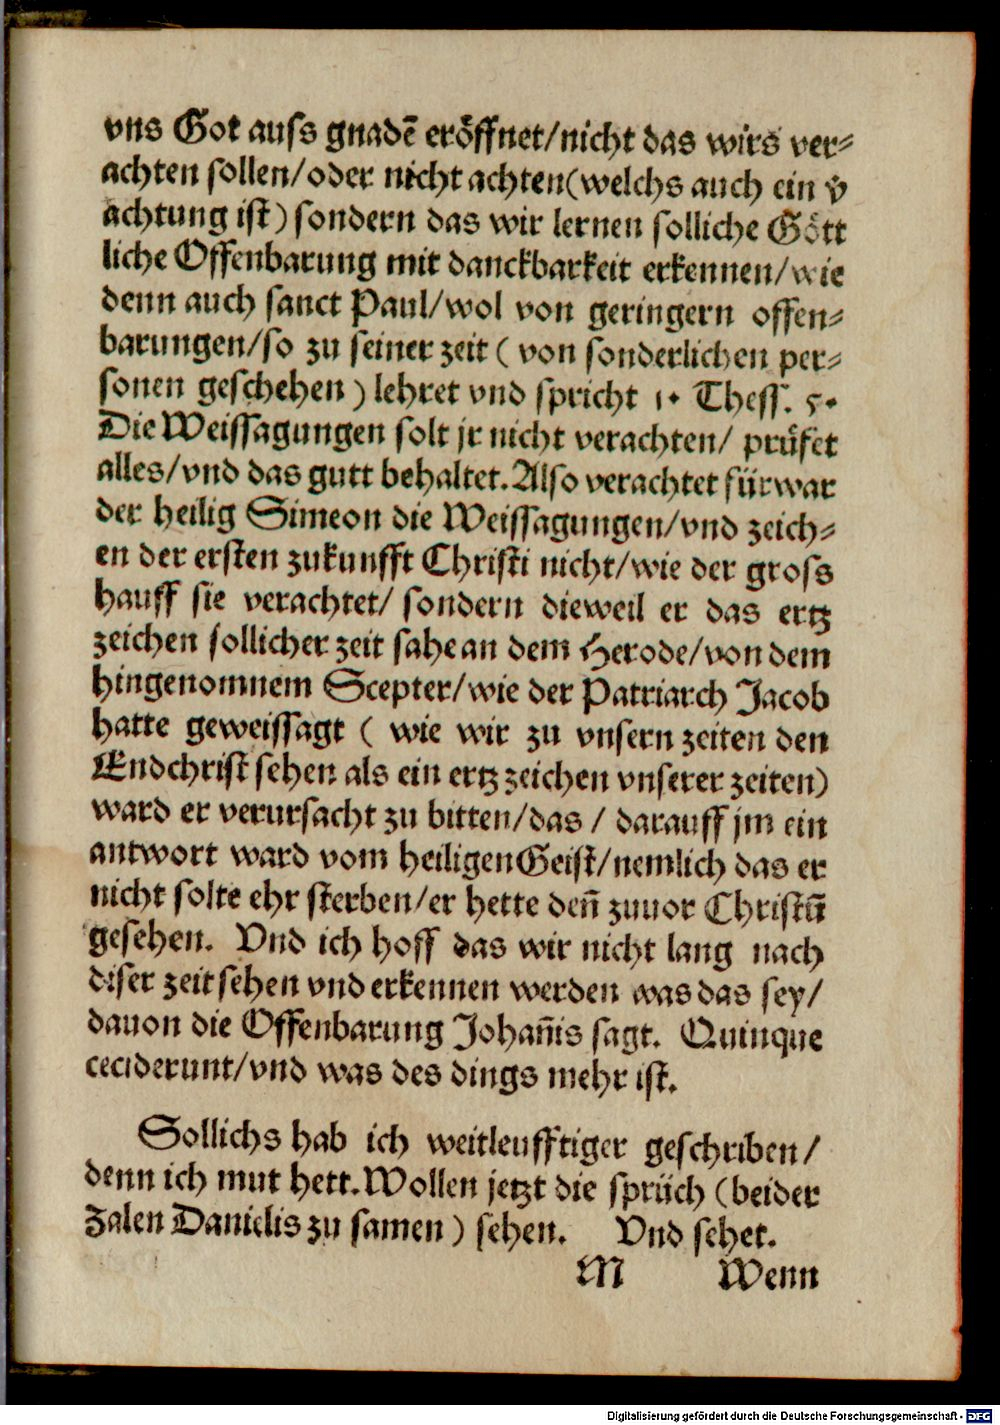 vns Got auss gnadē eröffnet/nicht das wirs ver-
achten sollen/oder nicht achten(welchs auch ein v̄
achtung ist) sondern das wir lernen solliche Gött
liche Offenbarung mit danckbarkeit erkennen/wie
denn auch sanct Paul/wol von geringern offen-
barungen/so zu seiner zeit ( von sonderlichen per-
sonen geschehen ) lehret vnd spricht 1. Thess. 5.
Die Weissagungen solt jr nicht verachten/ prüfet
alles/vnd das gutt behaltet. Also verachtet fürwar
der heilig Simeon die Weissagungen/vnd zeich-
en der ersten zukunfft Christi nicht/wie der gross
hauff sie verachtet/ sondern dieweil er das ertz
zeichen sollicher zeit sahe an dem Herode/von dem
hingenomnem Scepter/wie der Patriarch Jacob
hatte geweissagt ( wie wir zu vnsern zeiten den
Endchrist sehen als ein ertz zeichen vnserer zeiten)
ward er verursacht zu bitten/das / darauff jm ein
antwort ward vom heiligen Geist/nemlich das er
nicht solte ehr sterben/er hette deñ zuuor Christū
gesehen. Vnd ich hoff das wir nicht lang nach
diser zeit sehen vnd erkennen werden was das sey/
dauon die Offenbarung Johañis sagt. Quinque
ceciderunt/vnd was des dings mehr ist.
Sollichs hab ich weitleufftiger geschriben/
denn ich mut hett. Wollen jetzt die sprüch (beider
Zalen Danielis zu samen ) sehen. Vnd sehet.
M Wenn
Digitalisierung gefördert durch die Deutsche Forschungsgemeinschaft - DFG